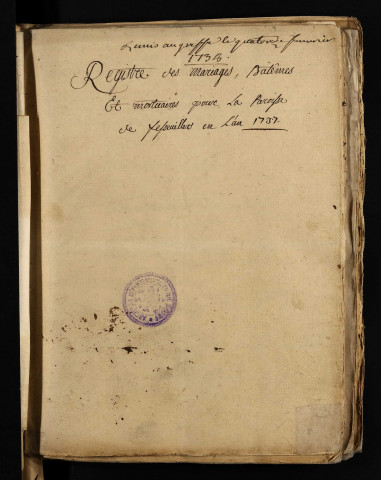 Remis au greffe le quatorze Janvier
1738
Registre des Mariages, Batêmes
Et mortuaires pour La Paroisse
de fesquillies en L'an 1737.